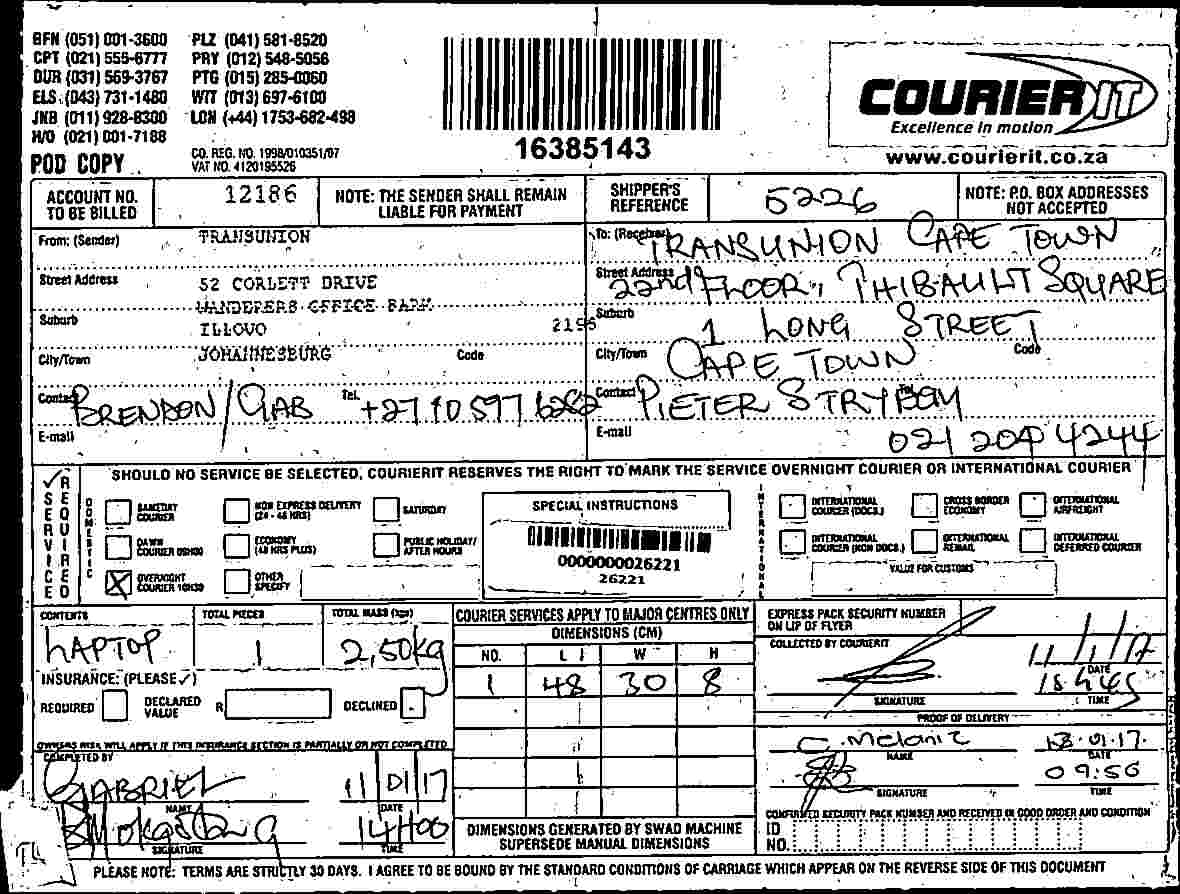 BFN (051) 001-3600 PLZ (041) 581-8520
CPT (021) 555-6777 PRY (012) 548-5056
DUR (031) 569-3767 PTG (015) 285-0060
ELS (043) 731-1480 WIT (013) 697-6100
JNB (011) 928-8300 LON (+44) 1753-682-498
H/O (021) 001-7188
POD COPY
CO. REG. NO. 1998/010351/07
VAT NO. 4120195526
16385143
COURIER IT
Excellence in motion
www.courierit.co.za
ACCOUNT NO. TO BE BILLED 12186
NOTE: THE SENDER SHALL REMAIN LIABLE FOR PAYMENT
SHIPPER'S REFERENCE 5226
NOTE: P.O. BOX ADDRESSES NOT ACCEPTED
From: (Sender) TRANSUNION
Street Address 52 CORLETT DRIVE
WANDERERS OFFICE PARK
Suburb ILLOVO 2196
City/Town JOHANNESBURG Code
Contact BRENDON/GAB Tel.
E-mail
To: (Receiver) TRANSUNION CAPE TOWN
Street Address 22nd FLOOR, THIBAULT SQUARE
Suburb 1 LONG STREET
City/Town CAPE TOWN Code
Contact PIETER STRYDOM Tel.
E-mail 021 204 4244
SERVICE REQUIRED
SHOULD NO SERVICE BE SELECTED, COURIERIT RESERVES THE RIGHT TO MARK THE SERVICE OVERNIGHT COURIER OR INTERNATIONAL COURIER
DOMESTIC
SAMEDAY COURIER
NON EXPRESS DELIVERY (24 - 48 HRS)
SATURDAY
DAWN COURIER 09H00
ECONOMY (48 HRS PLUS)
PUBLIC HOLIDAY/ AFTER HOURS
OVERNIGHT COURIER 10H30
OTHER SPECIFY
SPECIAL INSTRUCTIONS
0000000026221
26221
INTERNATIONAL
INTERNATIONAL COURIER (DOCS.)
CROSS BORDER ECONOMY
INTERNATIONAL AIRFREIGHT
INTERNATIONAL COURIER (NON DOCS.)
INTERNATIONAL REMAIL
INTERNATIONAL DEFERRED COURIER
VALUE FOR CUSTOMS
CONTENTS LAPTOP
TOTAL PIECES 1
TOTAL MASS (kgs) 2,50kg
INSURANCE: (PLEASE ✓)
REQUIRED DECLARED VALUE R DECLINED
OWNERS RISK WILL APPLY IF THIS INSURANCE SECTION IS PARTIALLY OR NOT COMPLETED
COMPLETED BY
GABRIEL 11/01/17
NAME DATE
14H00
SIGNATURE TIME
COURIER SERVICES APPLY TO MAJOR CENTRES ONLY
DIMENSIONS (CM)
NO. L W H
1 48 30 8
DIMENSIONS GENERATED BY SWAD MACHINE SUPERSEDE MANUAL DIMENSIONS
EXPRESS PACK SECURITY NUMBER ON LIP OF FLYER
COLLECTED BY COURIERIT
11/1/17
DATE
SIGNATURE TIME
PROOF OF DELIVERY
C. Melanie 13.01.17.
NAME DATE
09:56
SIGNATURE TIME
CONFIRMED SECURITY PACK NUMBER AND RECEIVED IN GOOD ORDER AND CONDITION
ID NO.
PLEASE NOTE: TERMS ARE STRICTLY 30 DAYS. I AGREE TO BE BOUND BY THE STANDARD CONDITIONS OF CARRIAGE WHICH APPEAR ON THE REVERSE SIDE OF THIS DOCUMENT